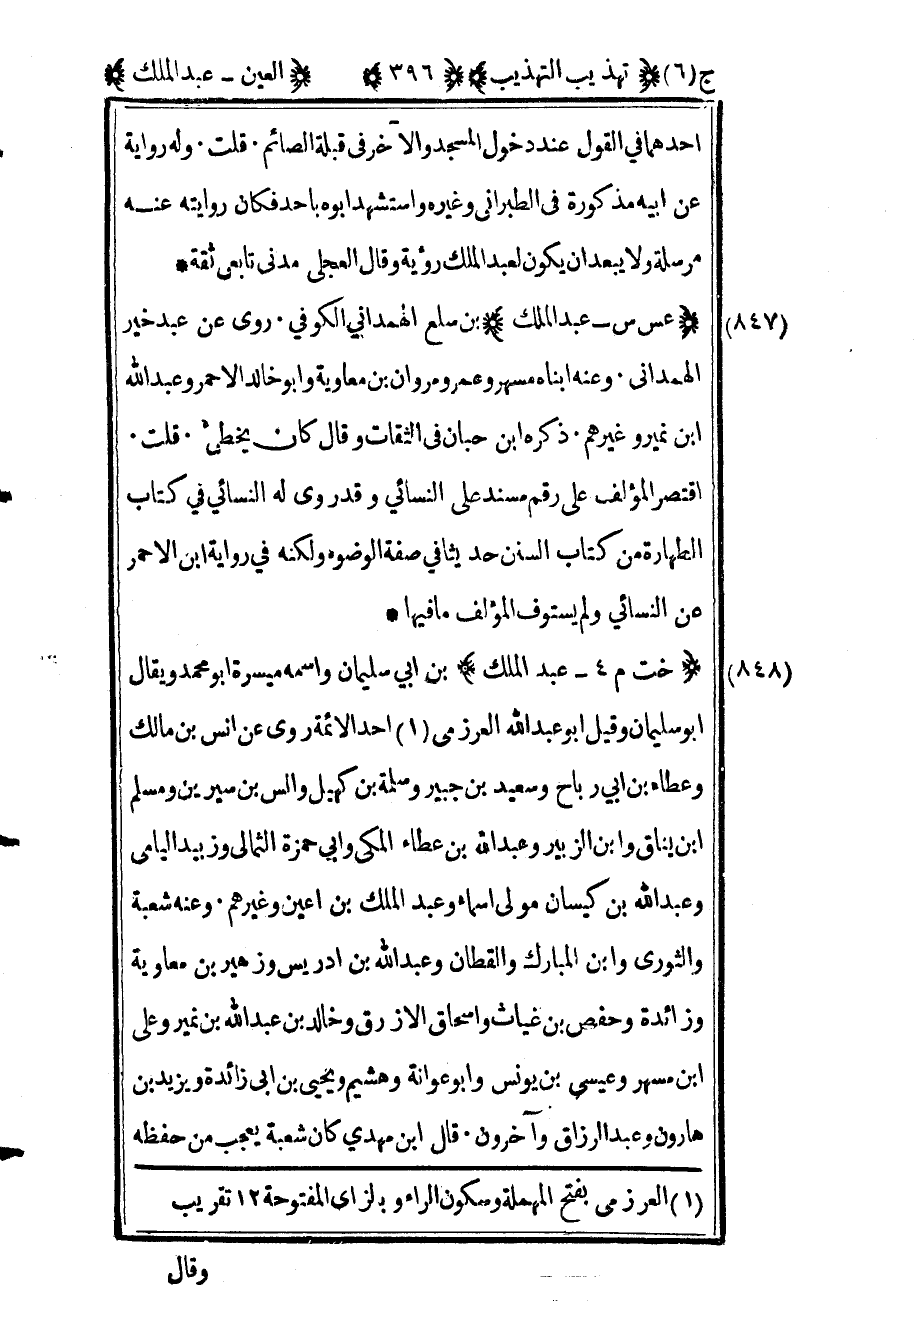 ج(٦) ﴿ تهذيب التهذيب ﴾ ﴿ ٣٩٦ ﴾ ﴿ العين ــ عبدالملك ﴾
احدهما في القول عند دخول المسجد والآخر فى قبلة الصائم ٠ قلت ٠ وله رواية
عن ابيه مذكورة فى الطبرانى وغيره واستشهد ابوه باحد فكان روايته عنــه
مرسلة ولا يبعد ان يكون لعبد الملك رؤية وقال العجلى مدنى تابعى ثقة *
(٨٤٧) ﴿ عس س ــ عبدالملك ﴾ بن سلع الهمداني الكوفي ٠ روى عن عبد خير
الهمدانى ٠ وعنه ابناه مسهر وعمرو مروان بن معاوية وابو خالد الاحمر وعبدالله
ابن نمير و غيرهم ٠ ذكره ابن حبان فى الثقات وقال كان يخطئ ٠ قلت ٠
اقتصر المؤلف على رقم مسند على النسائي و قد روى له النسائي في كتاب
الطهارة من كتاب السنن حديثا في صفة الوضوء ولكنه في رواية ابن الاحمر
عن النسائي ولم يستوف المؤلف مافيها *
(٨٤٨) ﴿ خت م ٤ ــ عبد الملك ﴾ بن ابي سليمان واسمه ميسرة ابو محمد ويقال
ابو سليمان وقيل ابو عبدالله العرزمى (١) احد الائمة روى عن انس بن مالك
وعطاء بن ابي رباح وسعيد بن جبير وسلمة بن كهيل وانس بن سيرين ومسلم
ابن يناق وابن الزبير وعبدالله بن عطاء المكي وابي حمزة الثمالى وزبيد اليامى
وعبدالله بن كيسان مولى اسماء وعبد الملك بن اعين وغيرهم ٠ وعنه شعبة
والثورى وابن المبارك والقطان وعبدالله بن ادريس وزهير بن معاوية
وزائدة وحفص بن غياث واسحاق الازرق وخالد بن عبدالله بن نمير وعلى
ابن مسهر وعيسى بن يونس وابو عوانة وهشيم ويحيى بن ابى زائدة ويزيد بن
هارون وعبدالرزاق وآخرون ٠ قال ابن مهدي كان شعبة يعجب من حفظه
(١) العرزمى بفتح المهملة وسكون الراء و بالزاى المفتوحة ١٢ تقريب
وقال